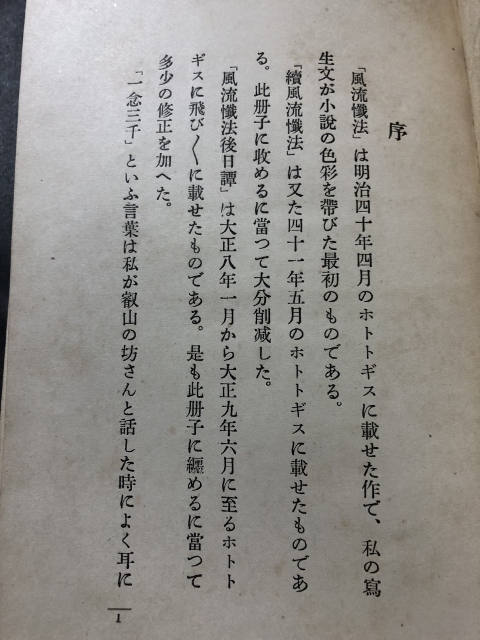 序
「風流懺法」は明治四十年四月のホトトギスに載せた作で、私の寫
生文が小說の色彩を帶びた最初のものである。
「續風流懺法」は又た四十一年五月のホトトギスに載せたものであ
る。此册子に收めるに當つて大分削減した。
「風流懺法後日譚」は大正八年一月から大正九年六月に至るホトト
ギスに飛び〱に載せたものである。是も此册子に纒めるに當つて
多少の修正を加へた。
「一念三千」といふ言葉は私が叡山の坊さんと話した時によく耳に
1